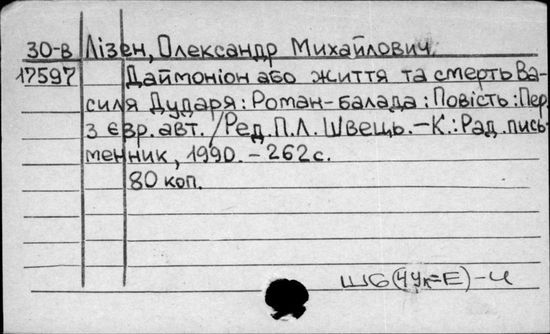 30-В Лізен, Олександр Михайлович.
17597 Даймоніон або життя та смерть Ва-
силя Дударя: Роман-балада: Повість: Пер.
з євр. авт. / Ред. П.Л. Швець. – К.: Рад. пись-
менник, 1990. – 262 с.
80 коп.
Ш6(4Ук=Е)-4